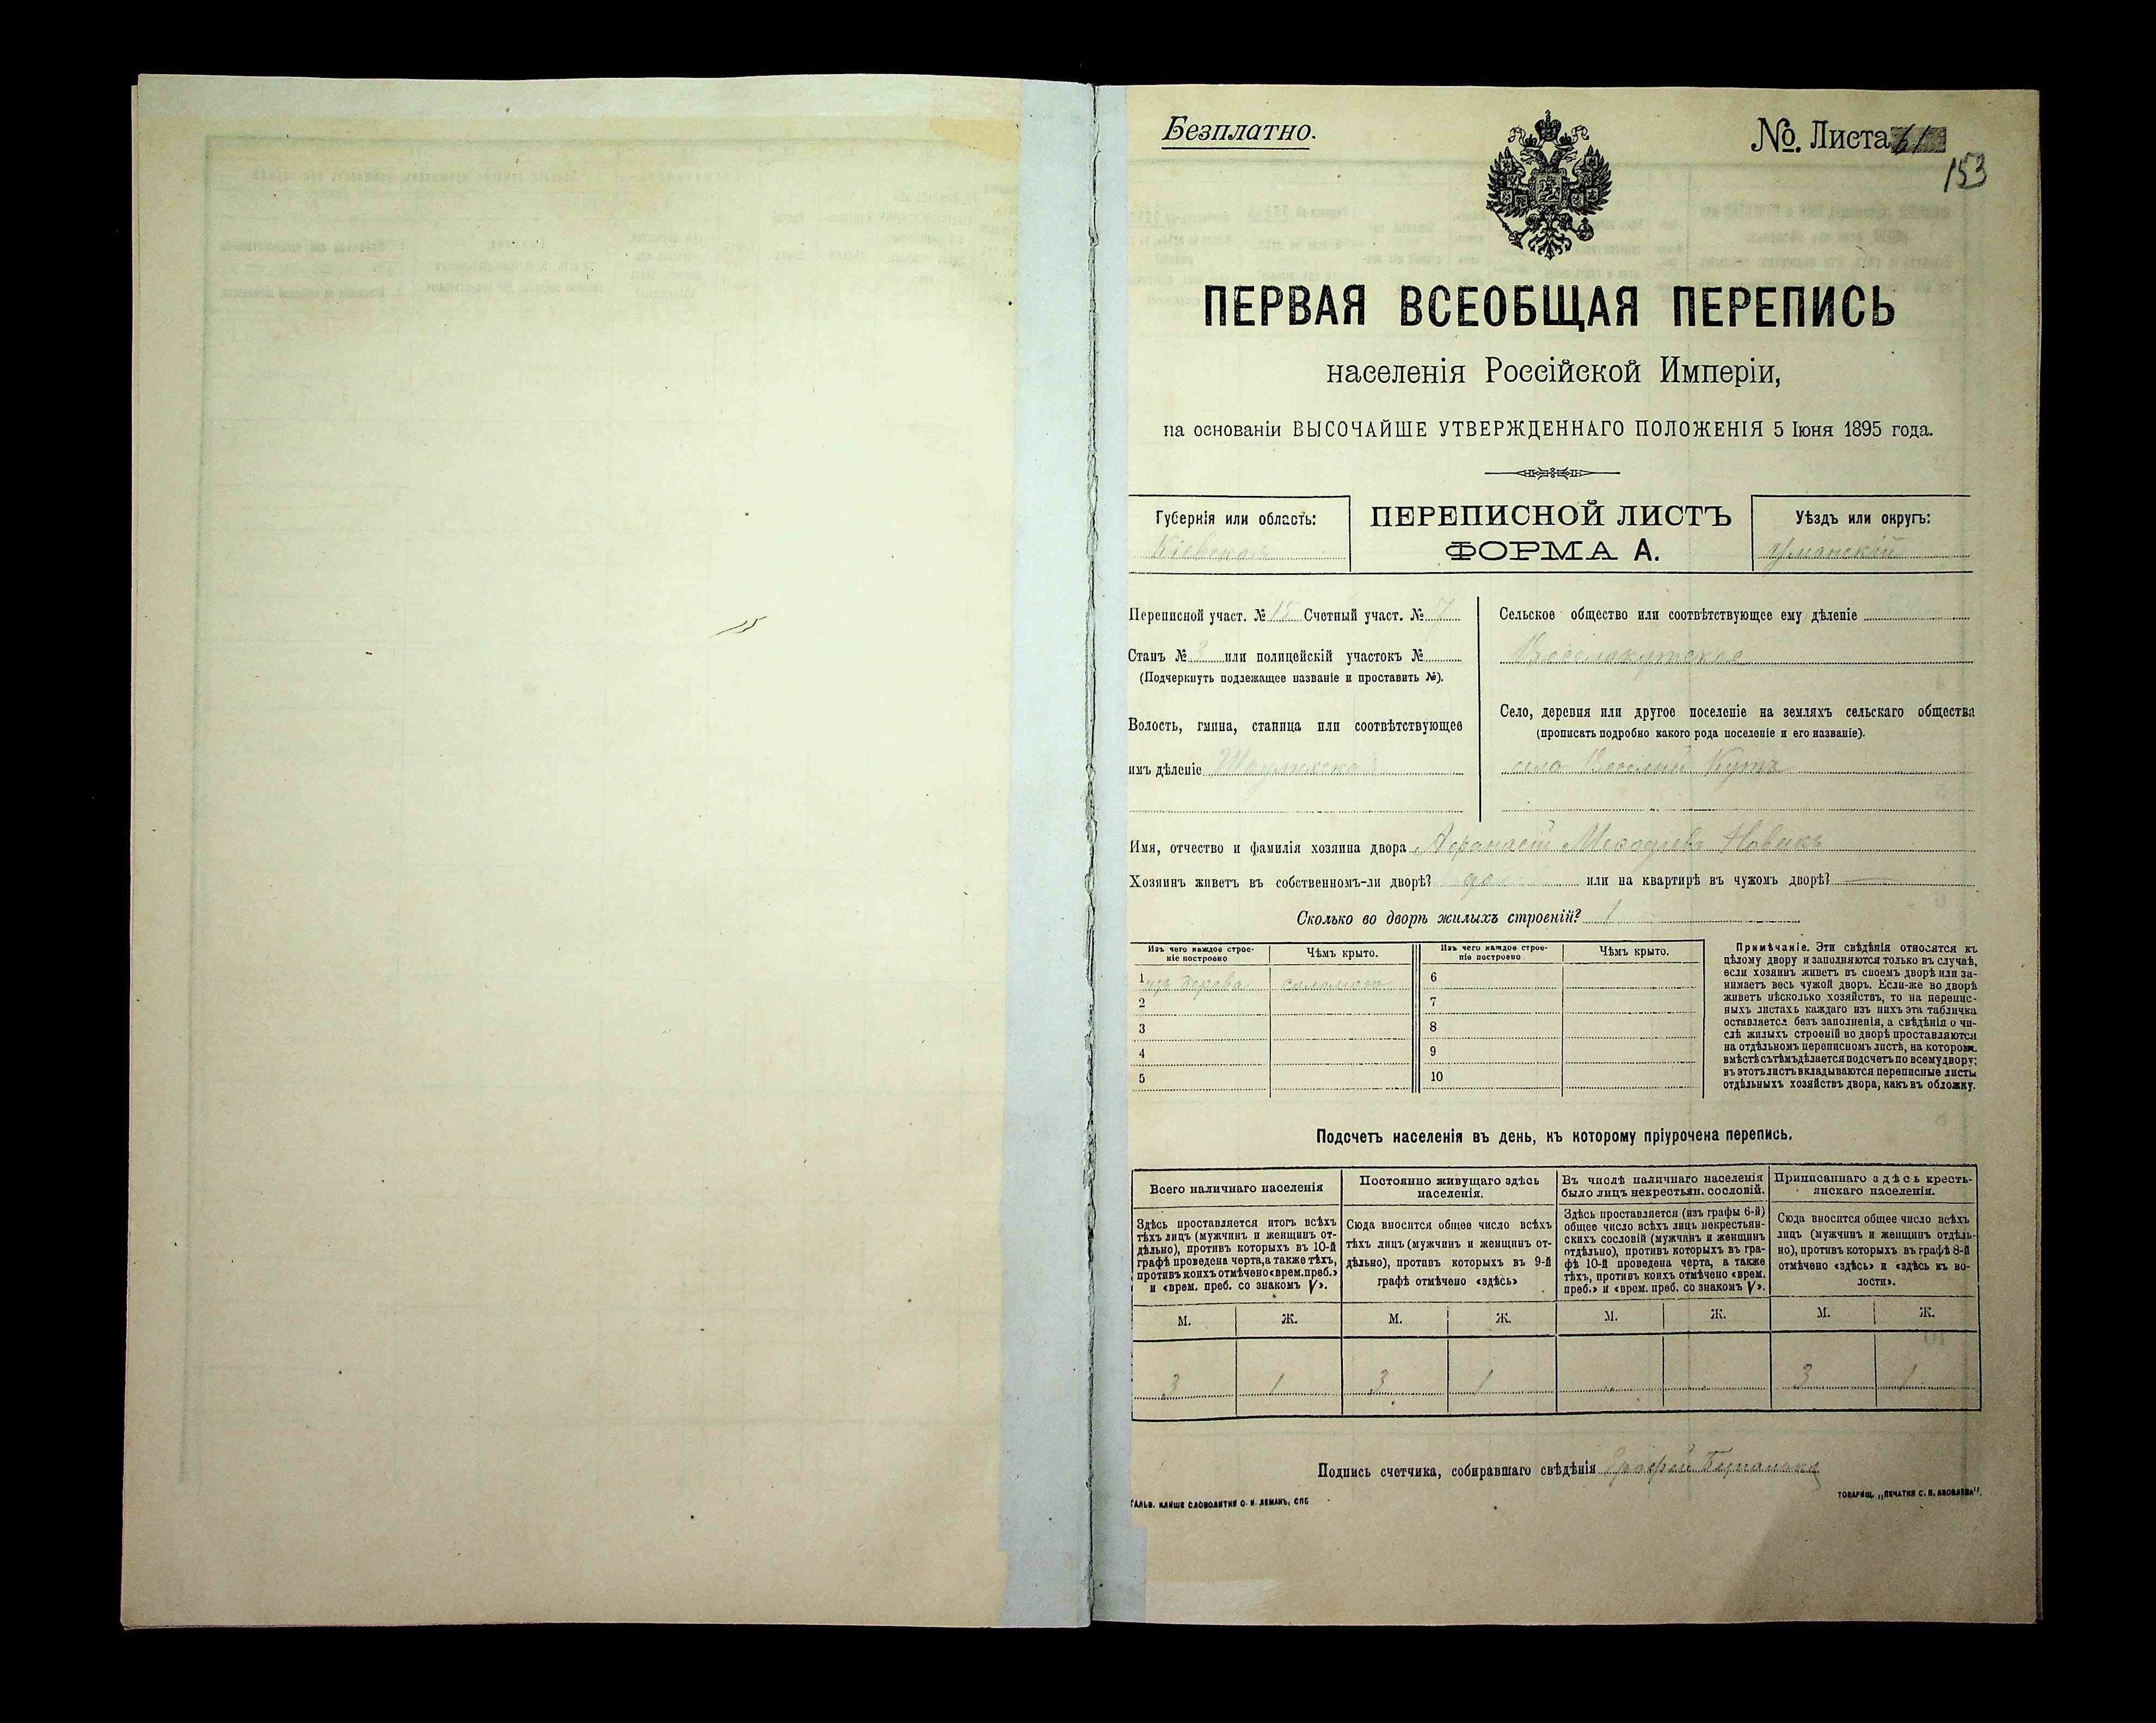 Безплатно.
№. Листа 61
153
ПЕРВАЯ ВСЕОБЩАЯ ПЕРЕПИСЬ
населенія Россійской Имперіи,
на основаніи ВЫСОЧАЙШЕ УТВЕРЖДЕННАГО ПОЛОЖЕНІЯ 5 Іюня 1895 года.
Губернія или область:
Кіевская
ПЕРЕПИСНОЙ ЛИСТЪ
ФОРМА А.
Уѣздъ или округъ:
Уманскій
Переписной участ. № 15 Счетный участ. № 7
Станъ № 3 или полицейскій участокъ №
(Подчеркнуть подлежащее названіе и проставить №).
Волость, гмина, станица или соотвѣтствующее
имъ дѣленіе
Сельское общество или соотвѣтствующее ему дѣленіе
Веселокутское
Село, деревня или другое поселеніе на земляхъ сельскаго общества
(прописать подробно какого рода поселеніе и его названіе).
село Веселый Кутъ
Имя, отчество и фамилія хозяина двора Афанасій Меѳодіевъ Новакъ
Хозяинъ живетъ въ собственномъ-ли дворѣ? да или на квартирѣ въ чужомъ дворѣ? —
Сколько во дворѣ жилыхъ строеній? 1
Изъ чего каждое строе-
ніе построено
Чѣмъ крыто.
Изъ чего каждое строе-
ніе построено
Чѣмъ крыто.
1 изъ дерева соломою
2
3
4
5
6
7
8
9
10
Примѣчаніе. Эти свѣдѣнія относятся къ
цѣлому двору и заполняются только въ случаѣ,
если хозяинъ живетъ въ своемъ дворѣ или за-
нимаетъ весь чужой дворъ. Если-же во дворѣ
живетъ нѣсколько хозяйствъ, то на перепис-
ныхъ листахъ каждаго изъ нихъ эта табличка
оставляется безъ заполненія, а свѣдѣнія о чи-
слѣ жилыхъ строеній во дворѣ проставляются
на отдѣльномъ переписномъ листѣ, на которомъ
вмѣстѣ съ тѣмъ дѣлается подсчетъ по всему двору;
въ этотъ листъ вкладываются переписные листы
отдѣльныхъ хозяйствъ двора, какъ въ обложку.
Подсчетъ населенія въ день, къ которому пріурочена перепись.
Всего наличнаго населенія
Здѣсь проставляется итогъ всѣхъ
тѣхъ лицъ (мужчинъ и женщинъ от-
дѣльно), противъ которыхъ въ 10-й
графѣ проведена черта, а также тѣхъ,
противъ коихъ отмѣчено «врем. преб.»
и «врем. преб. со знакомъ V».
Постоянно живущаго здѣсь
населенія.
Сюда вносится общее число всѣхъ
тѣхъ лицъ (мужчинъ и женщинъ от-
дѣльно), противъ которыхъ въ 9-й
графѣ отмѣчено «здѣсь»
Въ числѣ наличнаго населенія
было лицъ некрестьян. сословій.
Здѣсь проставляется (изъ графы 6-й)
общее число всѣхъ лицъ некрестьян-
скихъ сословій (мужчинъ и женщинъ
отдѣльно), противъ которыхъ въ гра-
фѣ 10-й проведена черта, а также
тѣхъ, противъ коихъ отмѣчено «врем.
преб.» и «врем. преб. со знакомъ V».
Приписаннаго здѣсь кресть-
янскаго населенія.
Сюда вносится общее число всѣхъ
лицъ (мужчинъ и женщинъ отдѣль-
но), противъ которыхъ въ графѣ 8-й
отмѣчено «здѣсь» и «здѣсь къ во-
лости».
М. Ж. М. Ж. М. Ж. М. Ж.
3 1 3 1 3 1
Подпись счетчика, собиравшаго свѣдѣнія
ГАЛЬВ. КЛИШЕ СЛОВОЛИТНИ О. И. ЛЕМАНЪ, СПБ
ТОВАРИЩ. „ПЕЧАТНЯ С. П. ЯКОВЛЕВА".